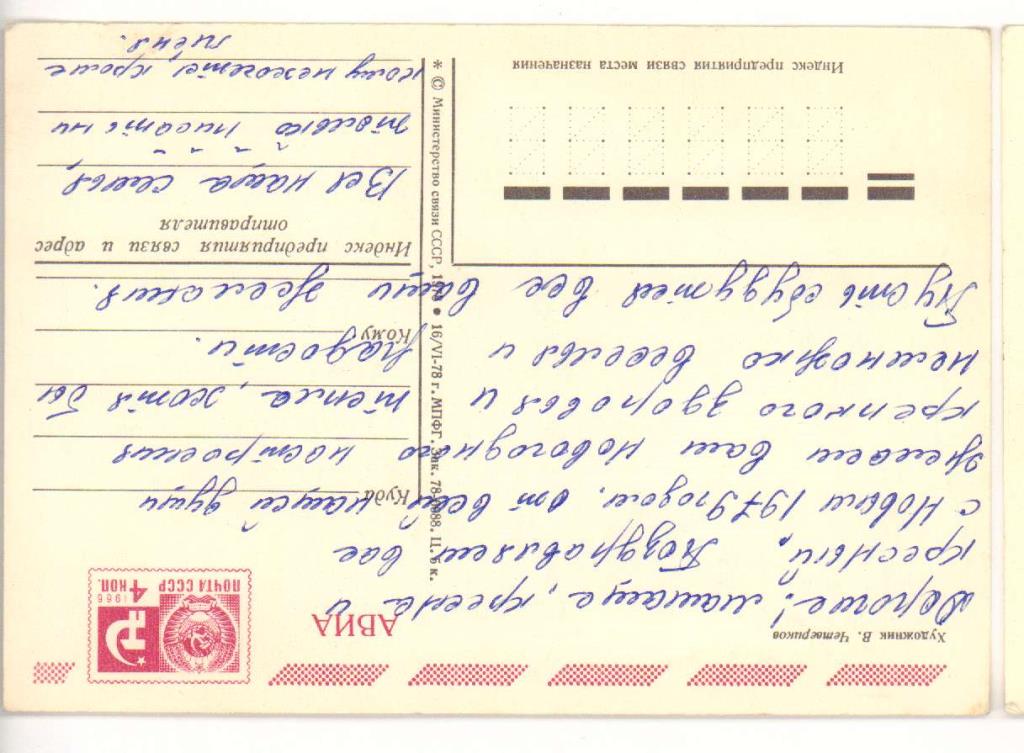 Художник В. Четвериков
АВИА
1966
ПОЧТА СССР 4 КОП.
Дорогие! мамаша, кресна и
кресный. Поздравляем вас
с Новым 1979 годом. от всей нашей души
желаем вам новогоднего настроения
крепкого здоровья и тепла, хотя бы
немножко веселья и радости.
Пусть сбудутся все ваши желания.
Куда
Кому
Индекс предприятия связи и адрес
отправителя
Вся наша семья
только писать им
кому не хочете, кроме
меня.
* © Министерство связи СССР, 1978 • 16/VI-78 г. МПФГ. Зак. 78-6088. Ц. 5 к.
Индекс предприятия связи места назначения